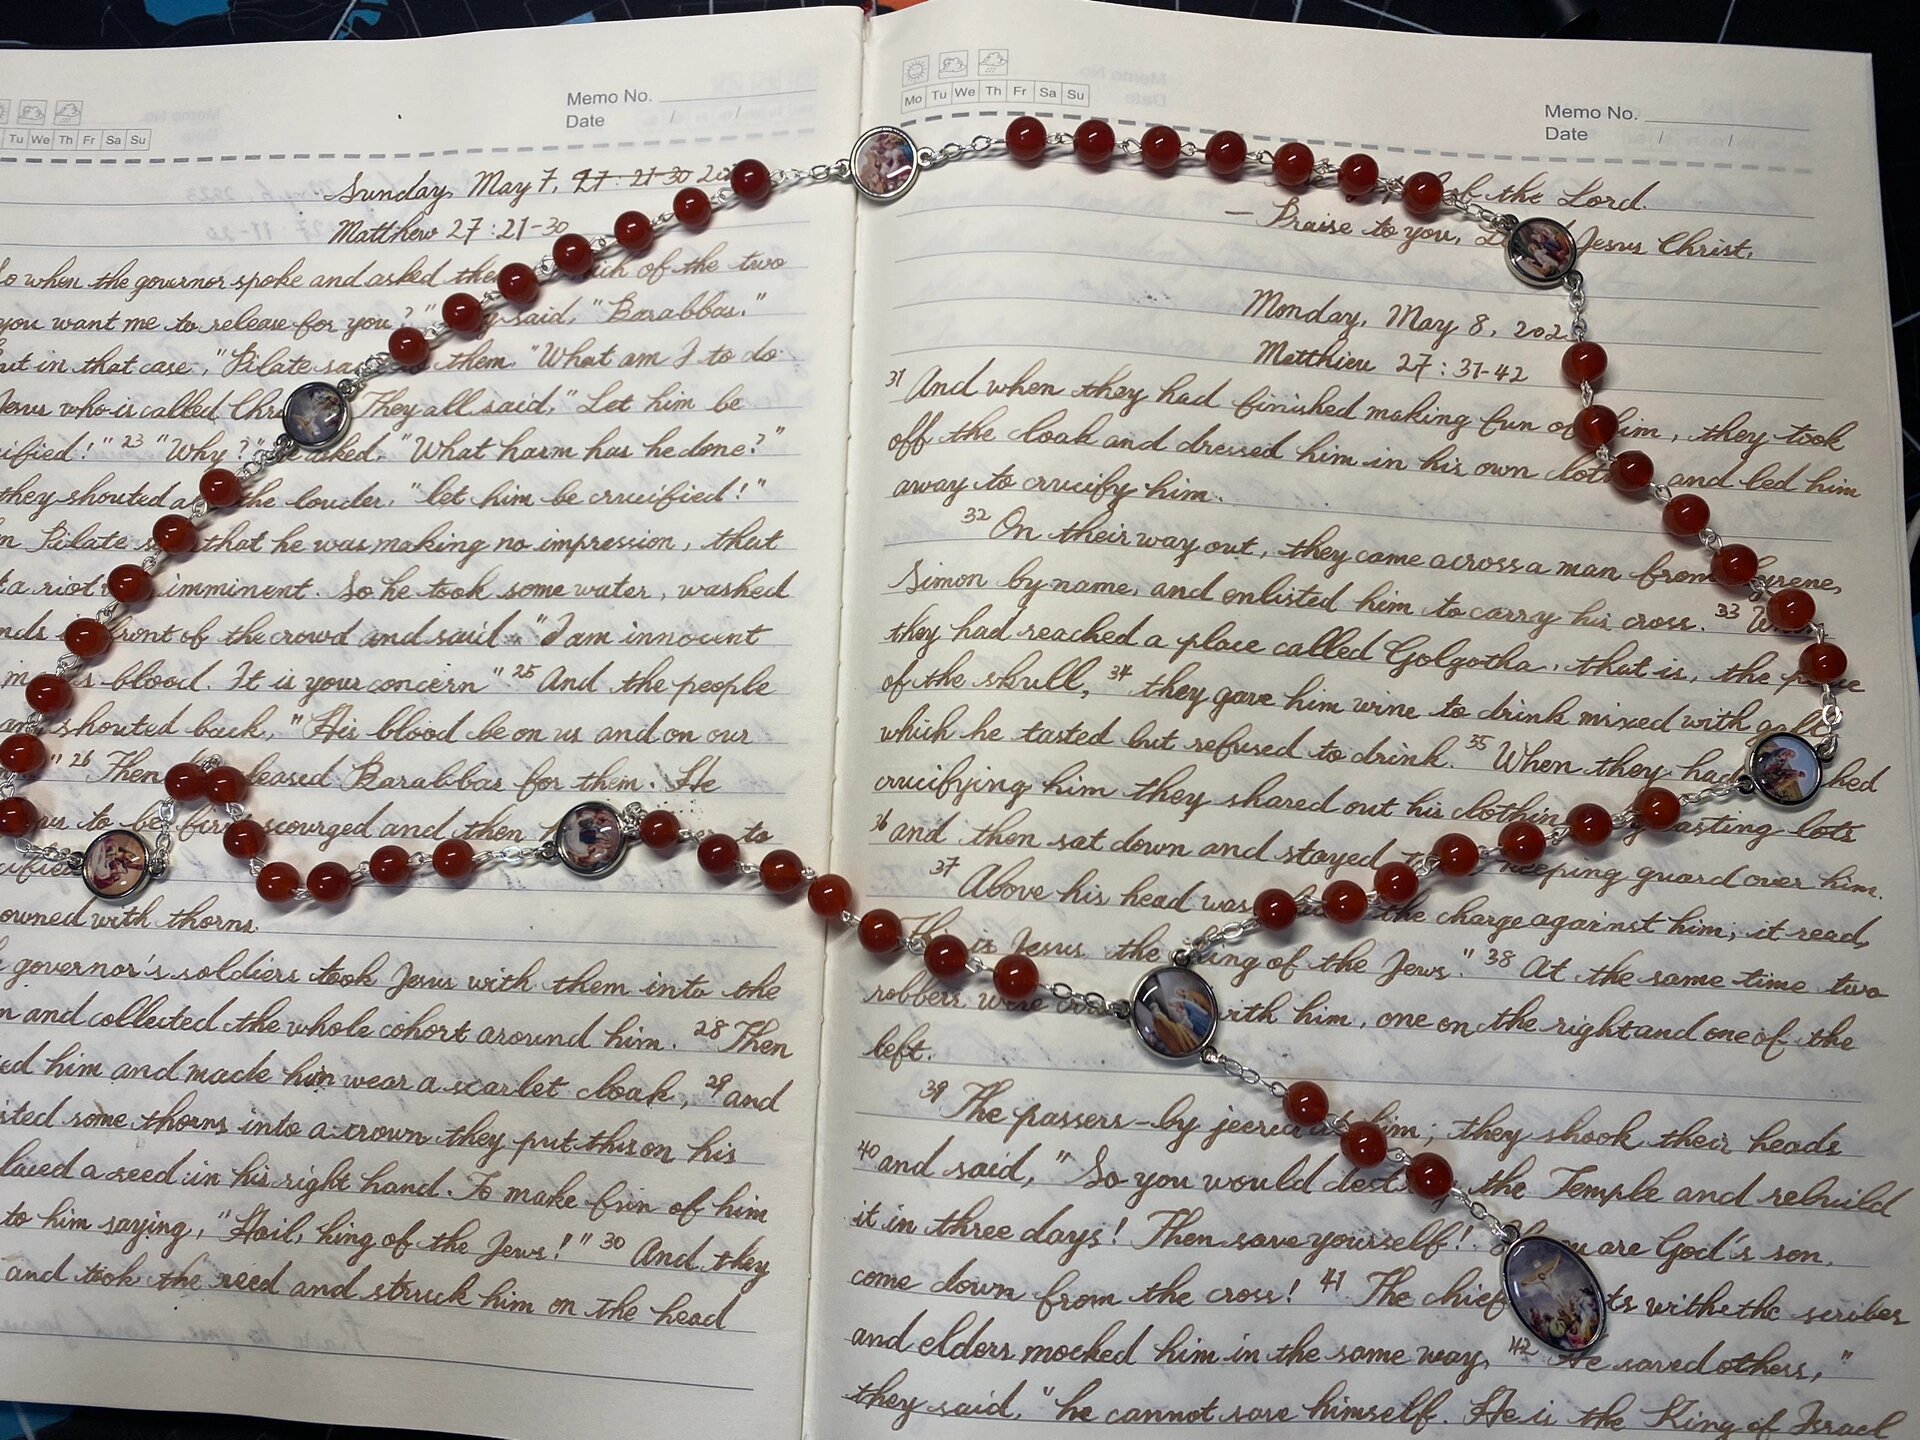 Tu We Th Fr Sa Su
Memo No.
Date / /
Sunday, May 7, 27:21-30 202
Matthew 27:21-30
so when the governor spoke and asked of the two
you want me to release for you?" said, "Barabbas."
ut in that case," Pilate them. "What am I to do
Jesus who is called They all said, "Let him be
ified!" 23 "Why?" asked. "What harm has he done?"
they shouted the louder, "let him be crucified!"
Pilate that he was making no impression, that
a riot imminent. So he took some water, washed
nds front of the crowd and said "I am innocent
blood. It is your concern" 25 And the people
shouted back, "His blood be on us and on our
" 26 Then leased Barabbas for them. He
to be first scourged and then to
cified
owned with thorns.
governor's soldiers took Jesus with them into the
and collected the whole cohort around him. 28 Then
ed him and made him wear a scarlet cloak, 29 and
isted some thorns into a crown they put this on his
laced a reed in his right hand. To make fun of him
to him saying, "Hail, king of the Jews!" 30 And they
and took the reed and struck him on the head
Mo Tu We Th Fr Sa Su
Memo No.
Date / /
of the Lord.
- Praise to you, Jesus Christ,
Monday, May 8, 202
Matthieu 27:31-42
31 And when they had finished making fun of him, they took
off the cloak and dressed him in his own and led him
away to crucify him.
32 On their way out, they came across a man from
Simon by name, and enlisted him to carry his cross. 33
they had reached a place called Golgotha, that is, the place
of the skull, 34 they gave him wine to drink mixed with
which he tasted but refused to drink. 35 When they had
crucifying him they shared out his casting lots
36 and then sat down and stayed keeping guard over him.
37 Above his head was the charge against him; it read,
This is Jesus the King of the Jews." 38 At the same time two
robbers were with him, one on the right and one of the
left.
39 The passers-by jeered him; they shook their heads
40 and said, "So you would the Temple and rebuild
it in three days! Then save yourself! you are God's son,
come down from the cross! 41 The chief with the scribes
and elders mocked him in the same way. 42 "He saved others,"
they said, "he cannot save himself. He is the King of Israel